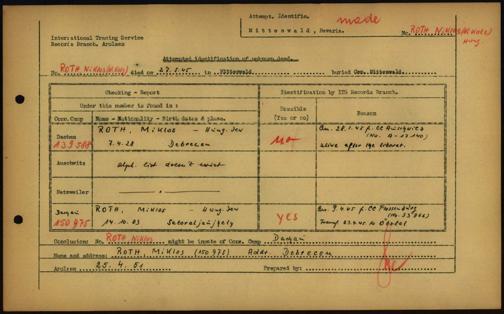 Attempt. Identific. made
Mittenwald, Bavaria.
International Tracing Service
Records Branch, Arolsen
No. ROTH Niklos (Miklos)
Hung.
Attempted identification of unknown dead.
No. ROTH Niklos (Miklos) died on 27.5.45 in Mittenwald buried Cem. Mittenwald.
Checking - Report
Identification by ITS Records Branch.
Under this number is found in:
Conc. Camp
Name - Nationality - Birth dates & place.
Possible (Yes or no)
Reason
Dachau
139588
ROTH, Miklos - Hung. Jew
7.4.28 Debrecen
no
On 28.1.45 f. CC Auschwitz
alive after the liberat.
Auschwitz
alph. list doesn't exist
Natzweiler
Dachau
150975
ROTH, Miklos - Hung. Jew
14.10.03
yes
On 9.4.45 f. CC Flossenbürg
Conclusion: No. ROTH Niklos might be inmate of Conc. Camp Dachau
Name and address: ROTH Miklos (150975) Addr. Debrecen
Arolsen 25.4.50 Prepared by: